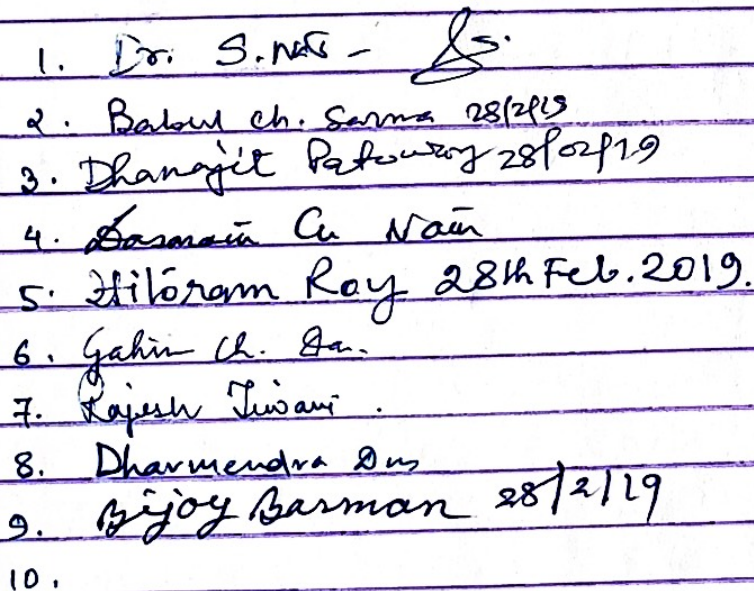 1. Dr. S. Nath -
2. Babul ch. Sarma 28/2/19
3. Dhanajit Patowary 28/02/19
4. Nath
5. Hiloram Ray 28th Feb. 2019.
6. Gahin Ch. Da.
7. Rajesh Tiwari.
8. Dharmendra Das
9. Bijoy Barman 28/2/19
10.